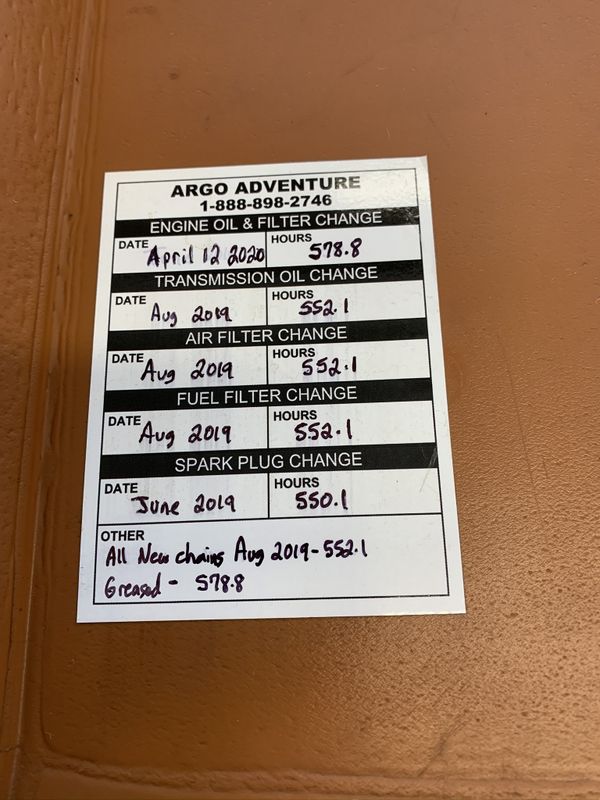 ARGO ADVENTURE
1-888-898-2746
ENGINE OIL & FILTER CHANGE
DATE April 12 2020 HOURS 578.8
TRANSMISSION OIL CHANGE
DATE Aug 2019 HOURS 552.1
AIR FILTER CHANGE
DATE Aug 2019 HOURS 552.1
FUEL FILTER CHANGE
DATE Aug 2019 HOURS 552.1
SPARK PLUG CHANGE
DATE June 2019 HOURS 550.1
OTHER
All New chains Aug 2019-552.1
Greased - 578.8